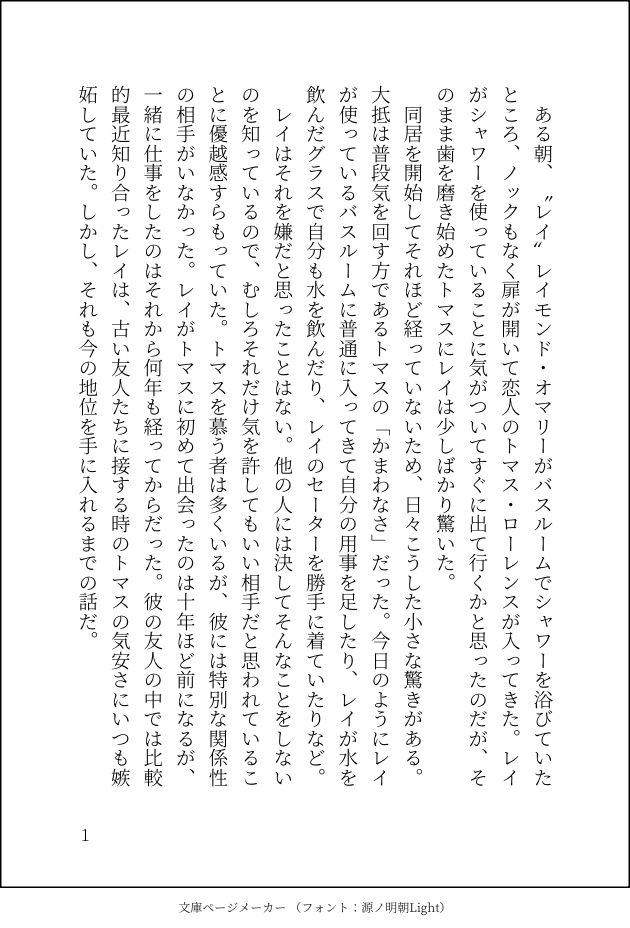 ある朝、〝レイ〟レイモンド・オマリーがバスルームでシャワーを浴びていた
ところ、ノックもなく扉が開いて恋人のトマス・ローレンスが入ってきた。レイ
がシャワーを使っていることに気がついてすぐに出て行くかと思ったのだが、そ
のまま歯を磨き始めたトマスにレイは少しばかり驚いた。
同居を開始してそれほど経っていないため、日々こうした小さな驚きがある。
大抵は普段気を回す方であるトマスの「かまわなさ」だった。今日のようにレイ
が使っているバスルームに普通に入ってきて自分の用事を足したり、レイが水を
飲んだグラスで自分も水を飲んだり、レイのセーターを勝手に着ていたりなど。
レイはそれを嫌だと思ったことはない。他の人には決してそんなことをしない
のを知っているので、むしろそれだけ気を許してもいい相手だと思われているこ
とに優越感すらもっていた。トマスを慕う者は多くいるが、彼には特別な関係性
の相手がいなかった。レイがトマスに初めて出会ったのは十年ほど前になるが、
一緒に仕事をしたのはそれから何年も経ってからだった。彼の友人の中では比較
的最近知り合ったレイは、古い友人たちに接する時のトマスの気安さにいつも嫉
妬していた。しかし、それも今の地位を手に入れるまでの話だ。
1
文庫ページメーカー（フォント：源ノ明朝Light）